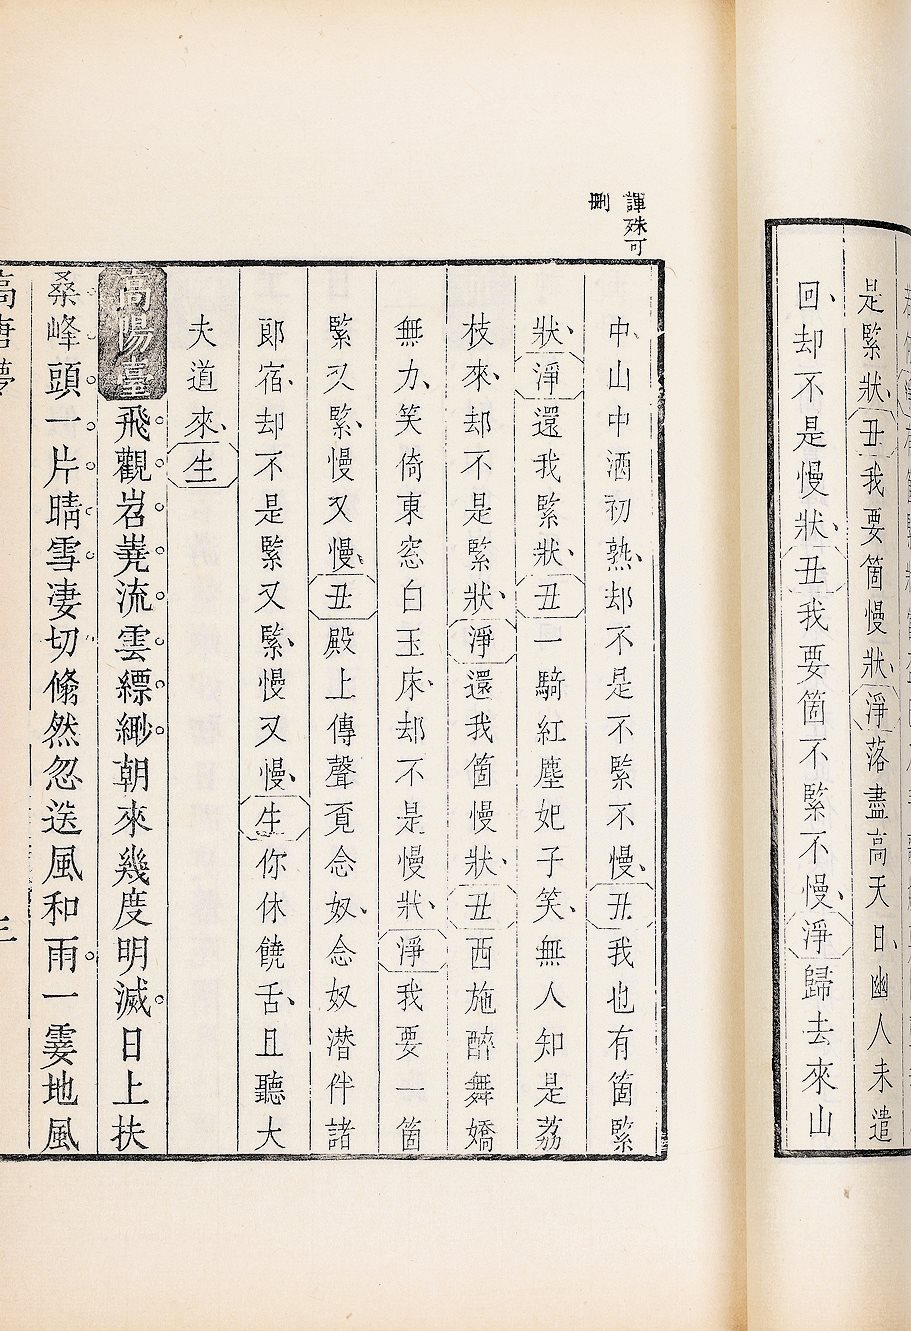 是緊狀、丑我要箇慢狀、淨落盡高天日、幽人未遣
回、却不是慢狀、丑我要箇不緊不慢、淨歸去來山
諢殊可
刪
中、山中酒初熟、却不是不緊不慢、丑我也有箇緊
狀、淨還我緊狀、丑一騎紅塵妃子笑、無人知是荔
枝來、却不是緊狀、淨還我箇慢狀、丑西施醉舞嬌
無力、笑倚東窓白玉床、却不是慢狀、淨我要一箇
緊又緊、慢又慢、丑殿上傳聲覔念奴、念奴潛伴諸
郎宿、却不是緊又緊、慢又慢、生你休饒舌、且聽大
夫道來、生
高陽臺飛觀岧嶤流雲縹緲朝來幾度明滅日上扶
桑峰頭一片晴雪凄切翛然忽送風和雨一霎地風
高唐夢